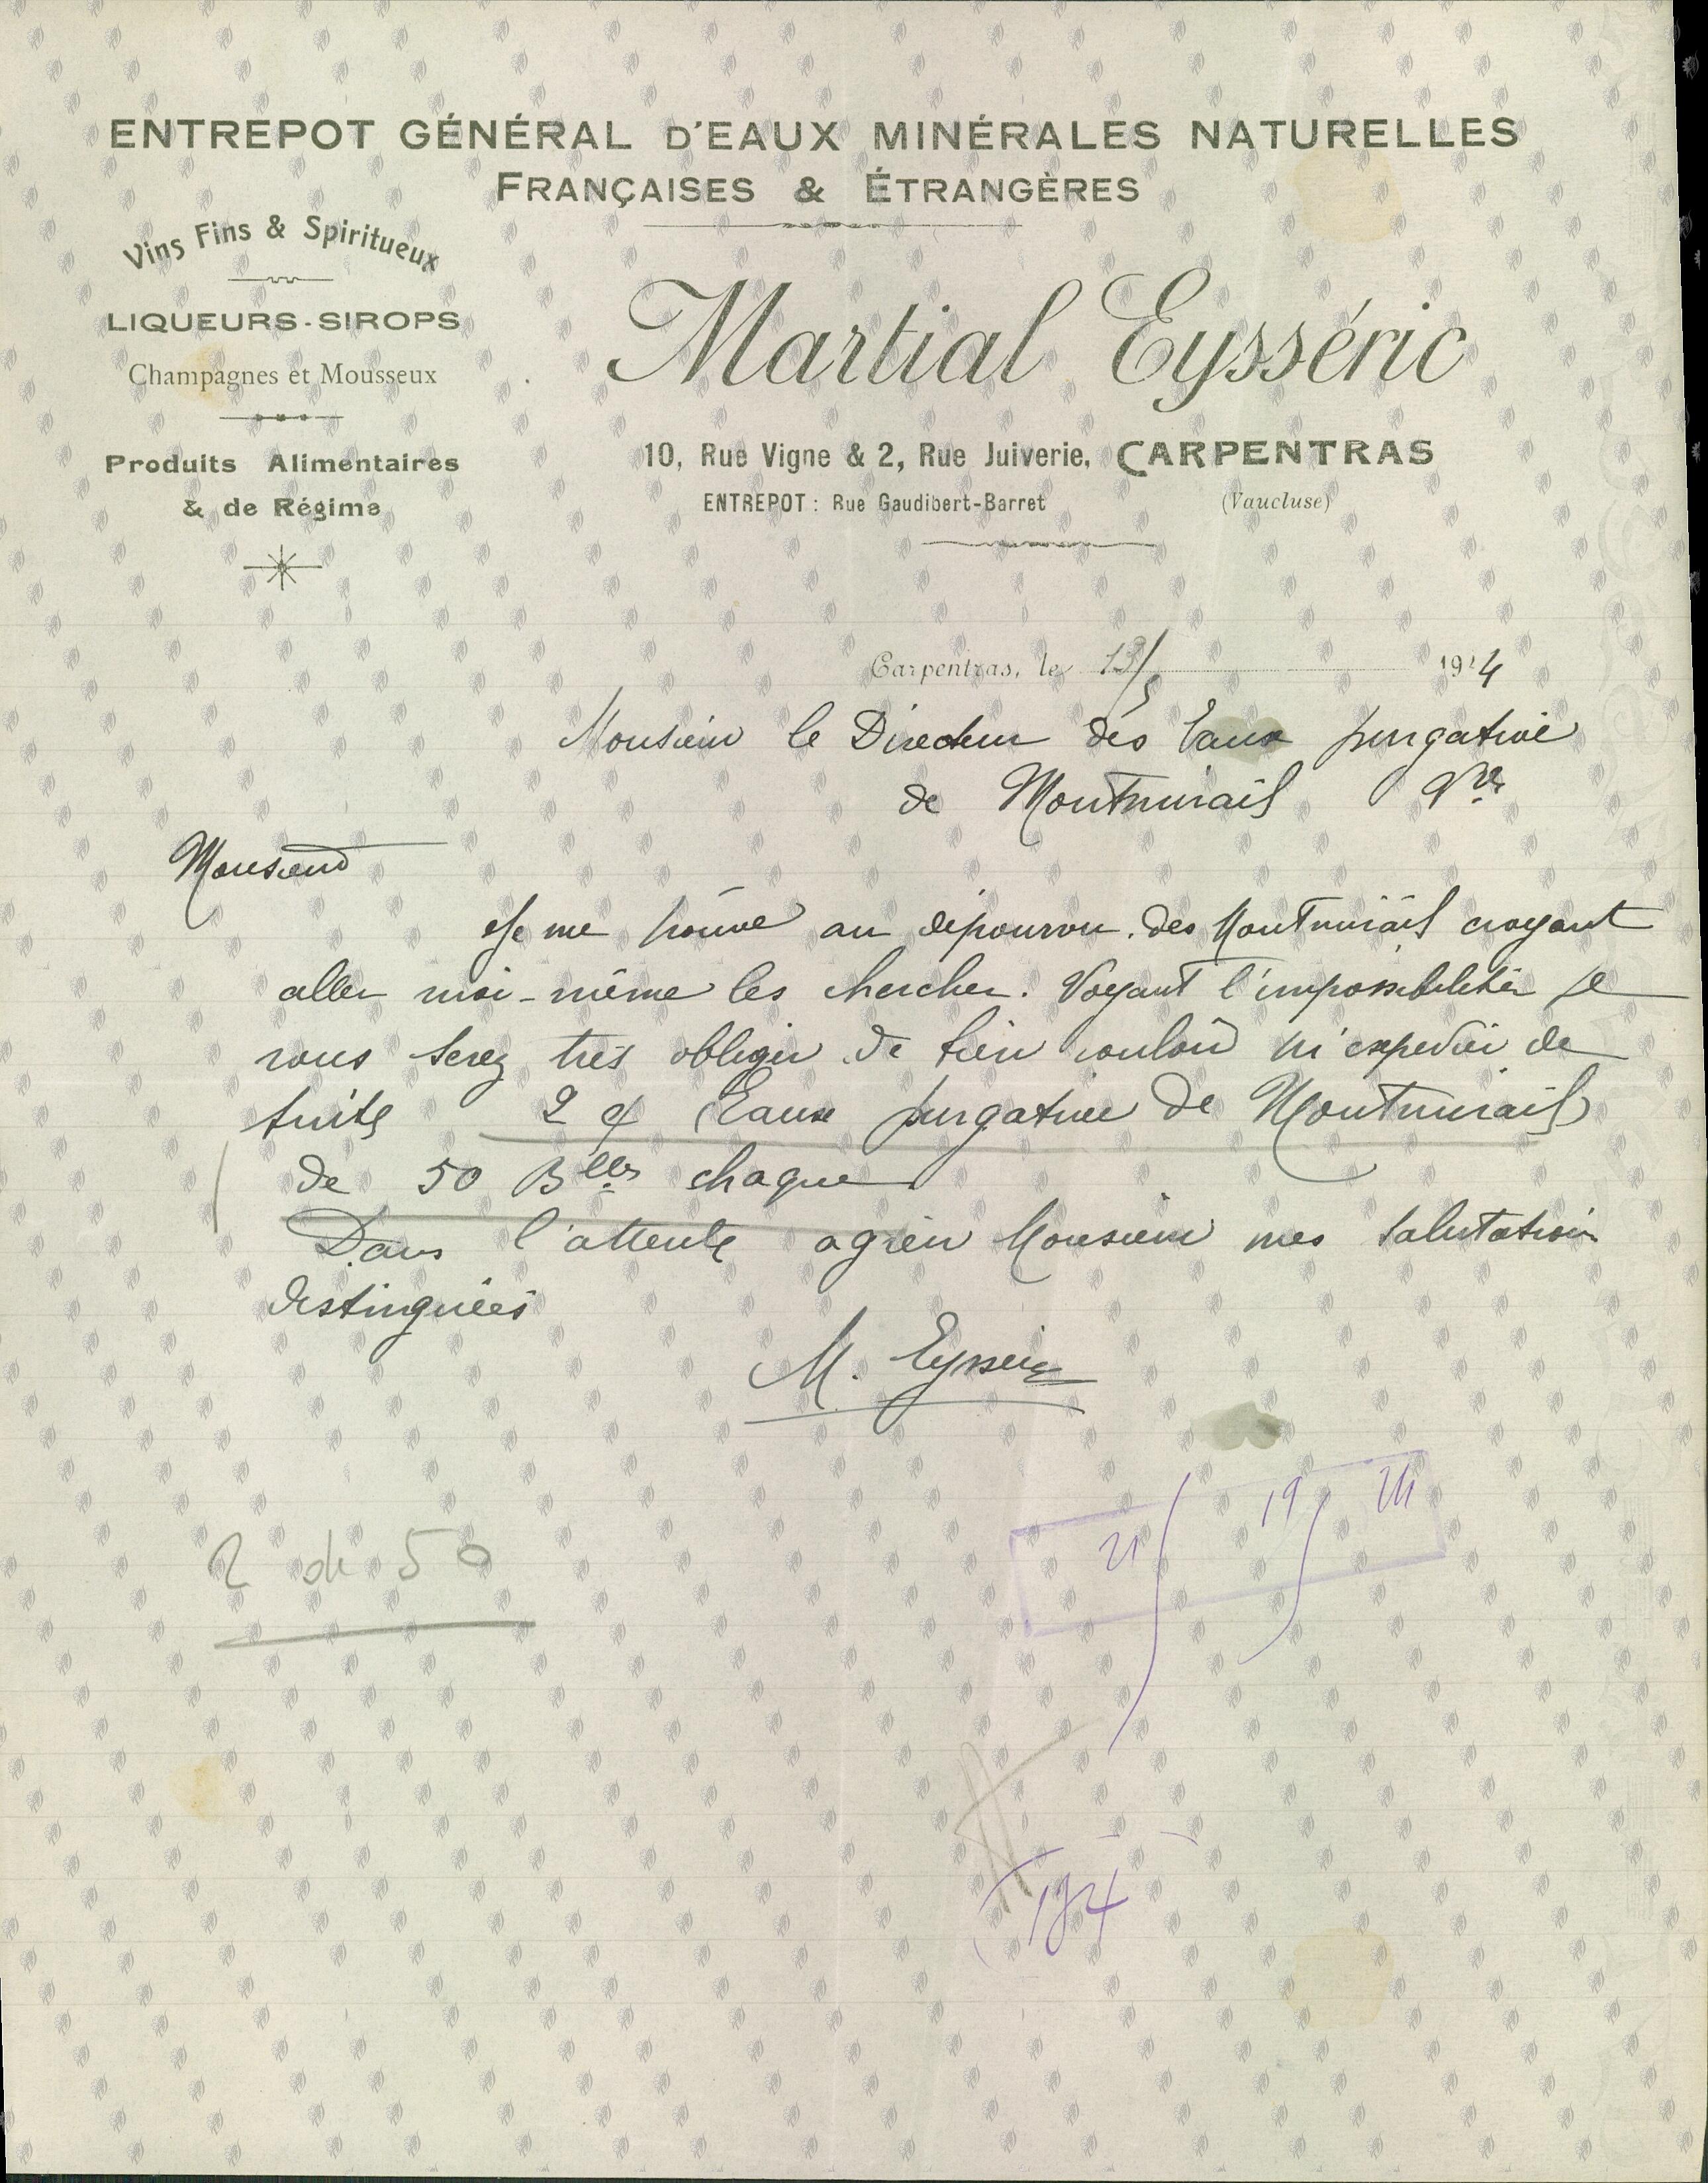 ENTREPOT GÉNÉRAL D'EAUX MINÉRALES NATURELLES
FRANÇAISES & ÉTRANGÈRES
Vins Fins & Spiritueux
LIQUEURS-SIROPS
Champagnes et Mousseux
Produits Alimentaires
& de Régime
Martial Eysséric
10, Rue Vigne & 2, Rue Juiverie, CARPENTRAS
ENTREPOT : Rue Gaudibert-Barret (Vaucluse)
Carpentras, le 13/5 1914
Monsieur le Directeur des Eaux purgative
de Montmirail
Monsieur
Je me trouve au dépourvu des Montmirail croyant
aller moi-même les chercher. Voyant l'impossibilitér je
vous serez très obliger de bien vouloir m'expedier de
suite 2 c/ Eaux purgative de Montmirail
de 50 Blles chaque
Dans l'attente agréer Monsieur mes salutations
distinguées
M. Eysséric
2 de 50
21 19 14
194